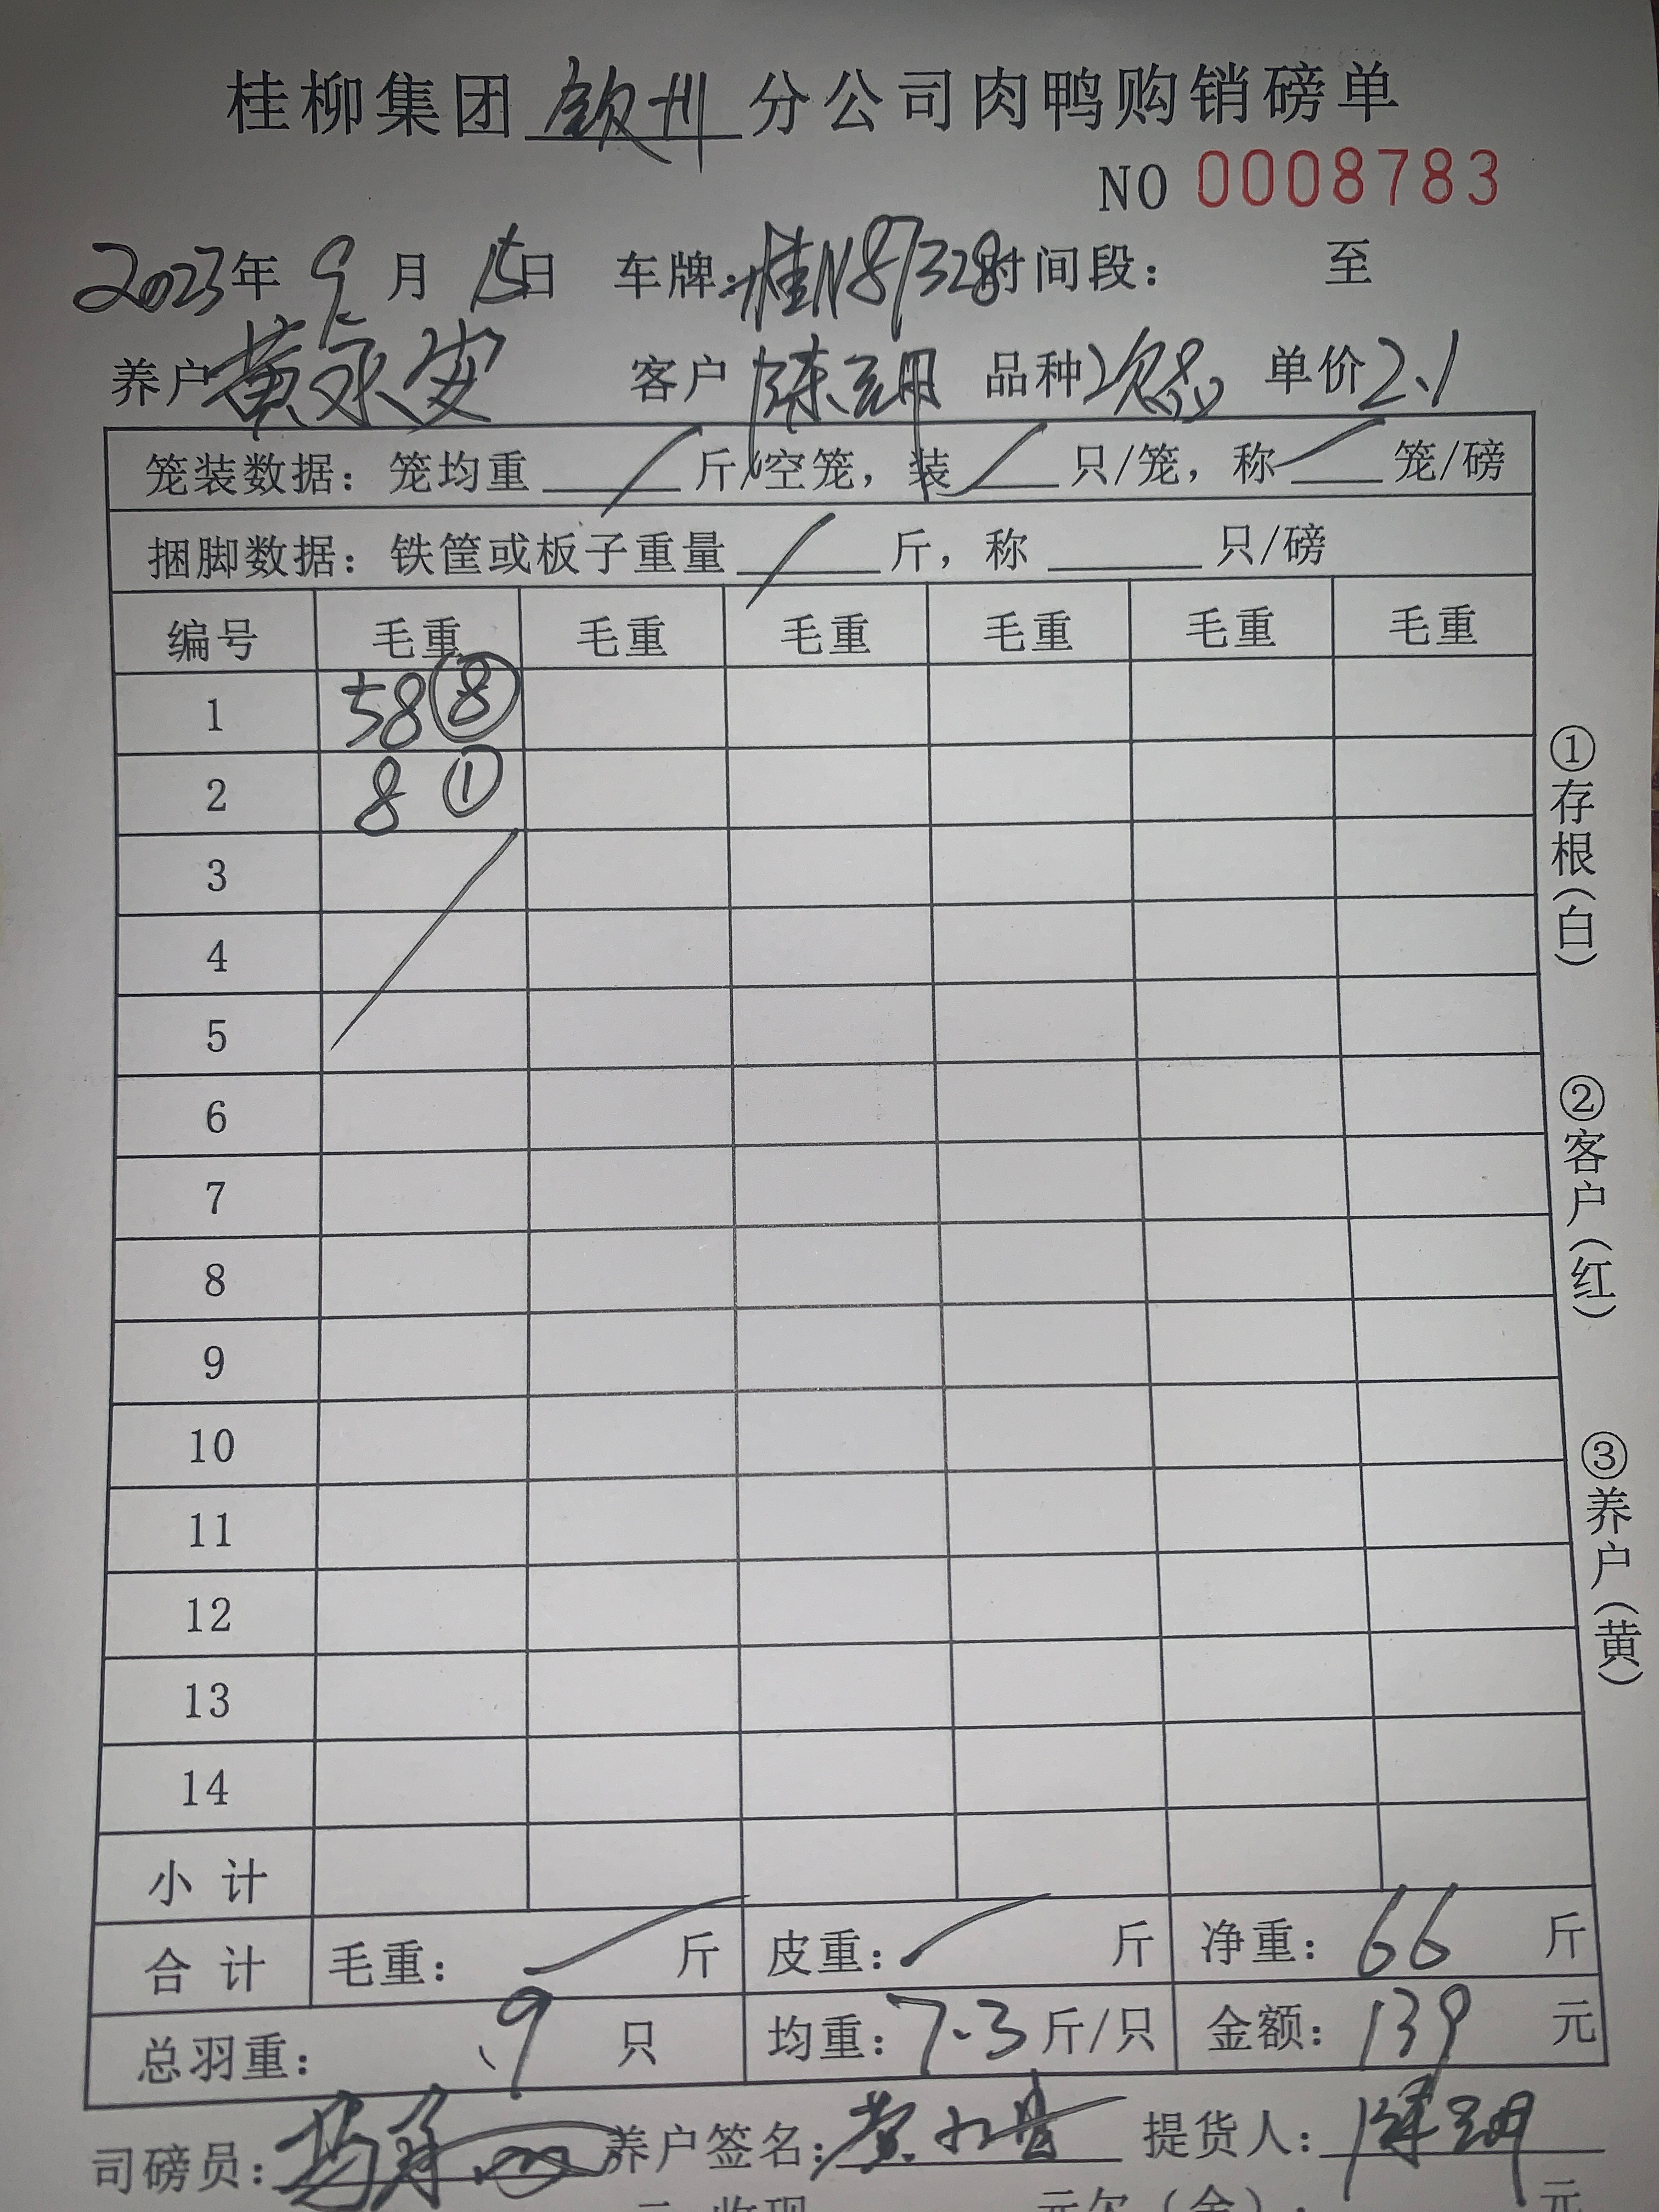 桂柳集团 钦州 分公司肉鸭购销磅单
NO 0008783
2023年 9 月 15日 车牌:桂N87328时间段: 至
养户 黄永安 客户 陈明 品种 次品 单价 2.1
笼装数据: 笼均重 / 斤/空笼, 装 / 只/笼, 称 / 笼/磅
捆脚数据: 铁筐或板子重量 / 斤, 称 只/磅
编号 毛重 毛重 毛重 毛重 毛重 毛重
1 58 ⑧
2 8 ①
3
4
5
6
7
8
9
10
11
12
13
14
小 计
合 计 毛重: 斤 皮重: 斤 净重: 66 斤
总羽重: 9 只 均重: 7.3 斤/只 金额: 139 元
司磅员: 养户签名: 提货人:
元 收现 元欠(余): 元
①存根(白)
②客户(红)
③养户(黄)